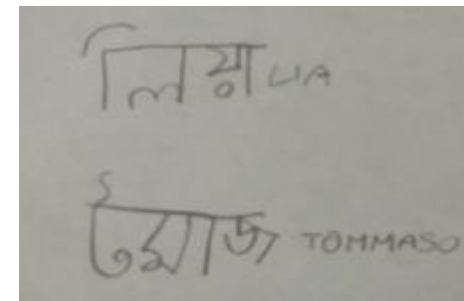 লিয়া LIA
টমাজ TOMMASO